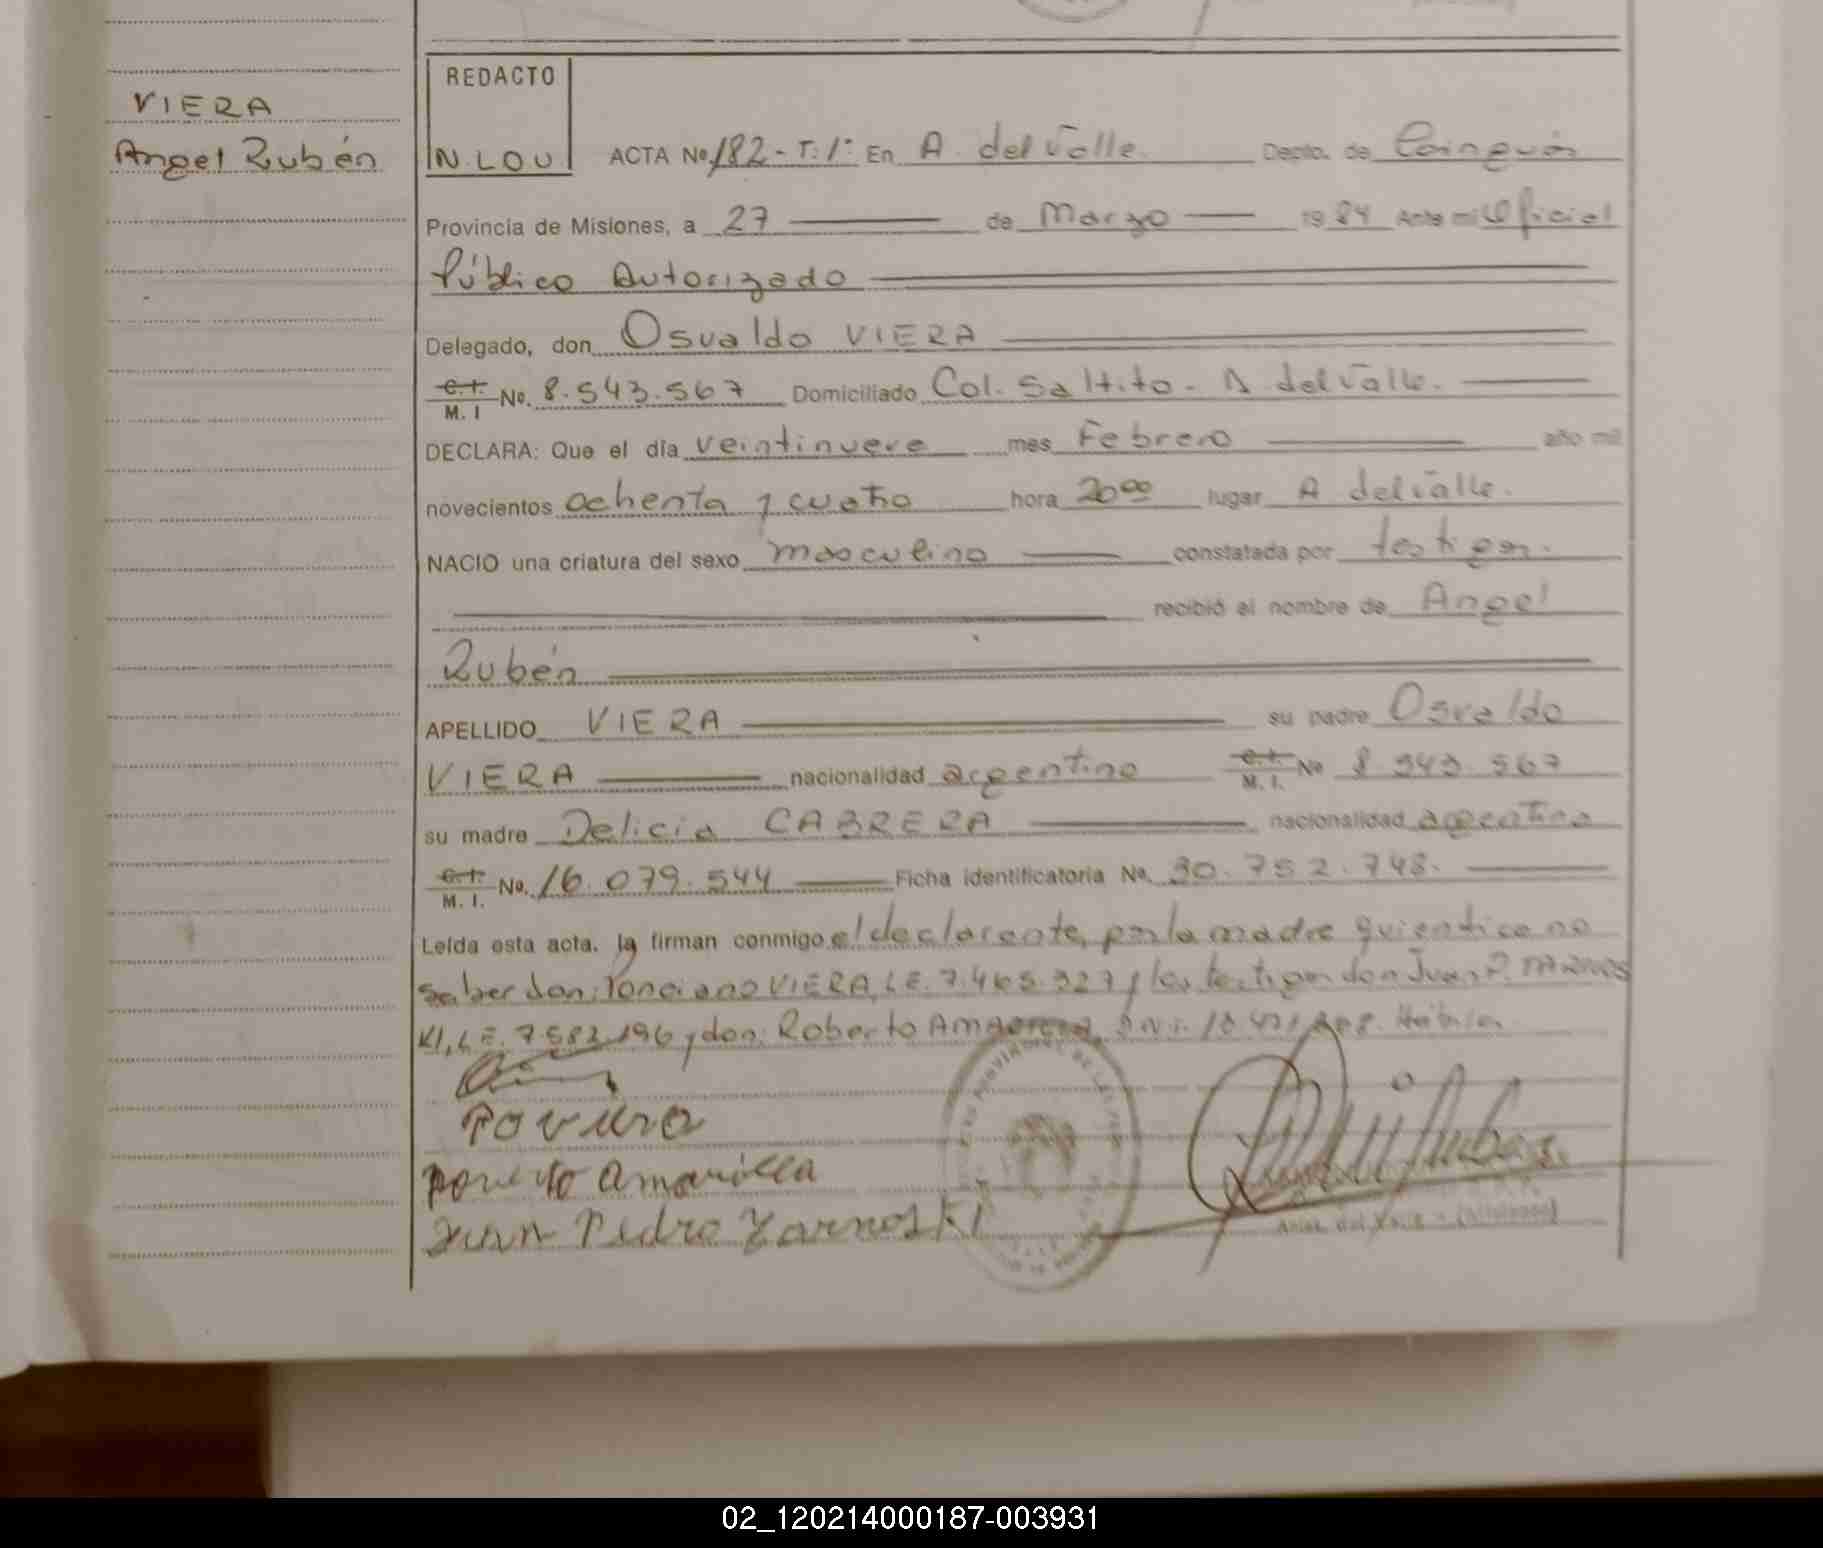 VIERA
Angel Rubén
REDACTO
N. LOU
ACTA No. 182 - T: 1º En A. del Valle. Depto. de Cainguás
Provincia de Misiones, a 27 de Marzo 1984 Ante mi Oficial
Público Autorizado
Delegado, don Osvaldo VIERA
C.I. M. I No. 8.543.567 Domiciliado Col. Saltito - A del Valle.
DECLARA: Que el día veintinueve mes Febrero año mil
novecientos ochenta y cuatro hora 20 00 lugar A del Valle.
NACIO una criatura del sexo masculino constatada por testigos.
recibió el nombre de Angel
Rubén
APELLIDO VIERA su padre Osvaldo
VIERA nacionalidad argentino C.I. M. I. No 8.543.567
su madre Delicia CABRERA nacionalidad argentina
C.I. M. I. No. 16.079.544 Ficha identificatoria No. 30.752.748.
Leída esta acta. la firman conmigo el declarante, por la madre quien dice no
saber don: Ponciano VIERA, L.E. 7.465.927 y los testigos don Juan P. ZARNOS
KI, L.E. 7.582.196 y don: Roberto AMARILLA, D.N.I.
P o Viera
Roberto Amarilla
Juan Pedro Zarnoski
02_120214000187-003931